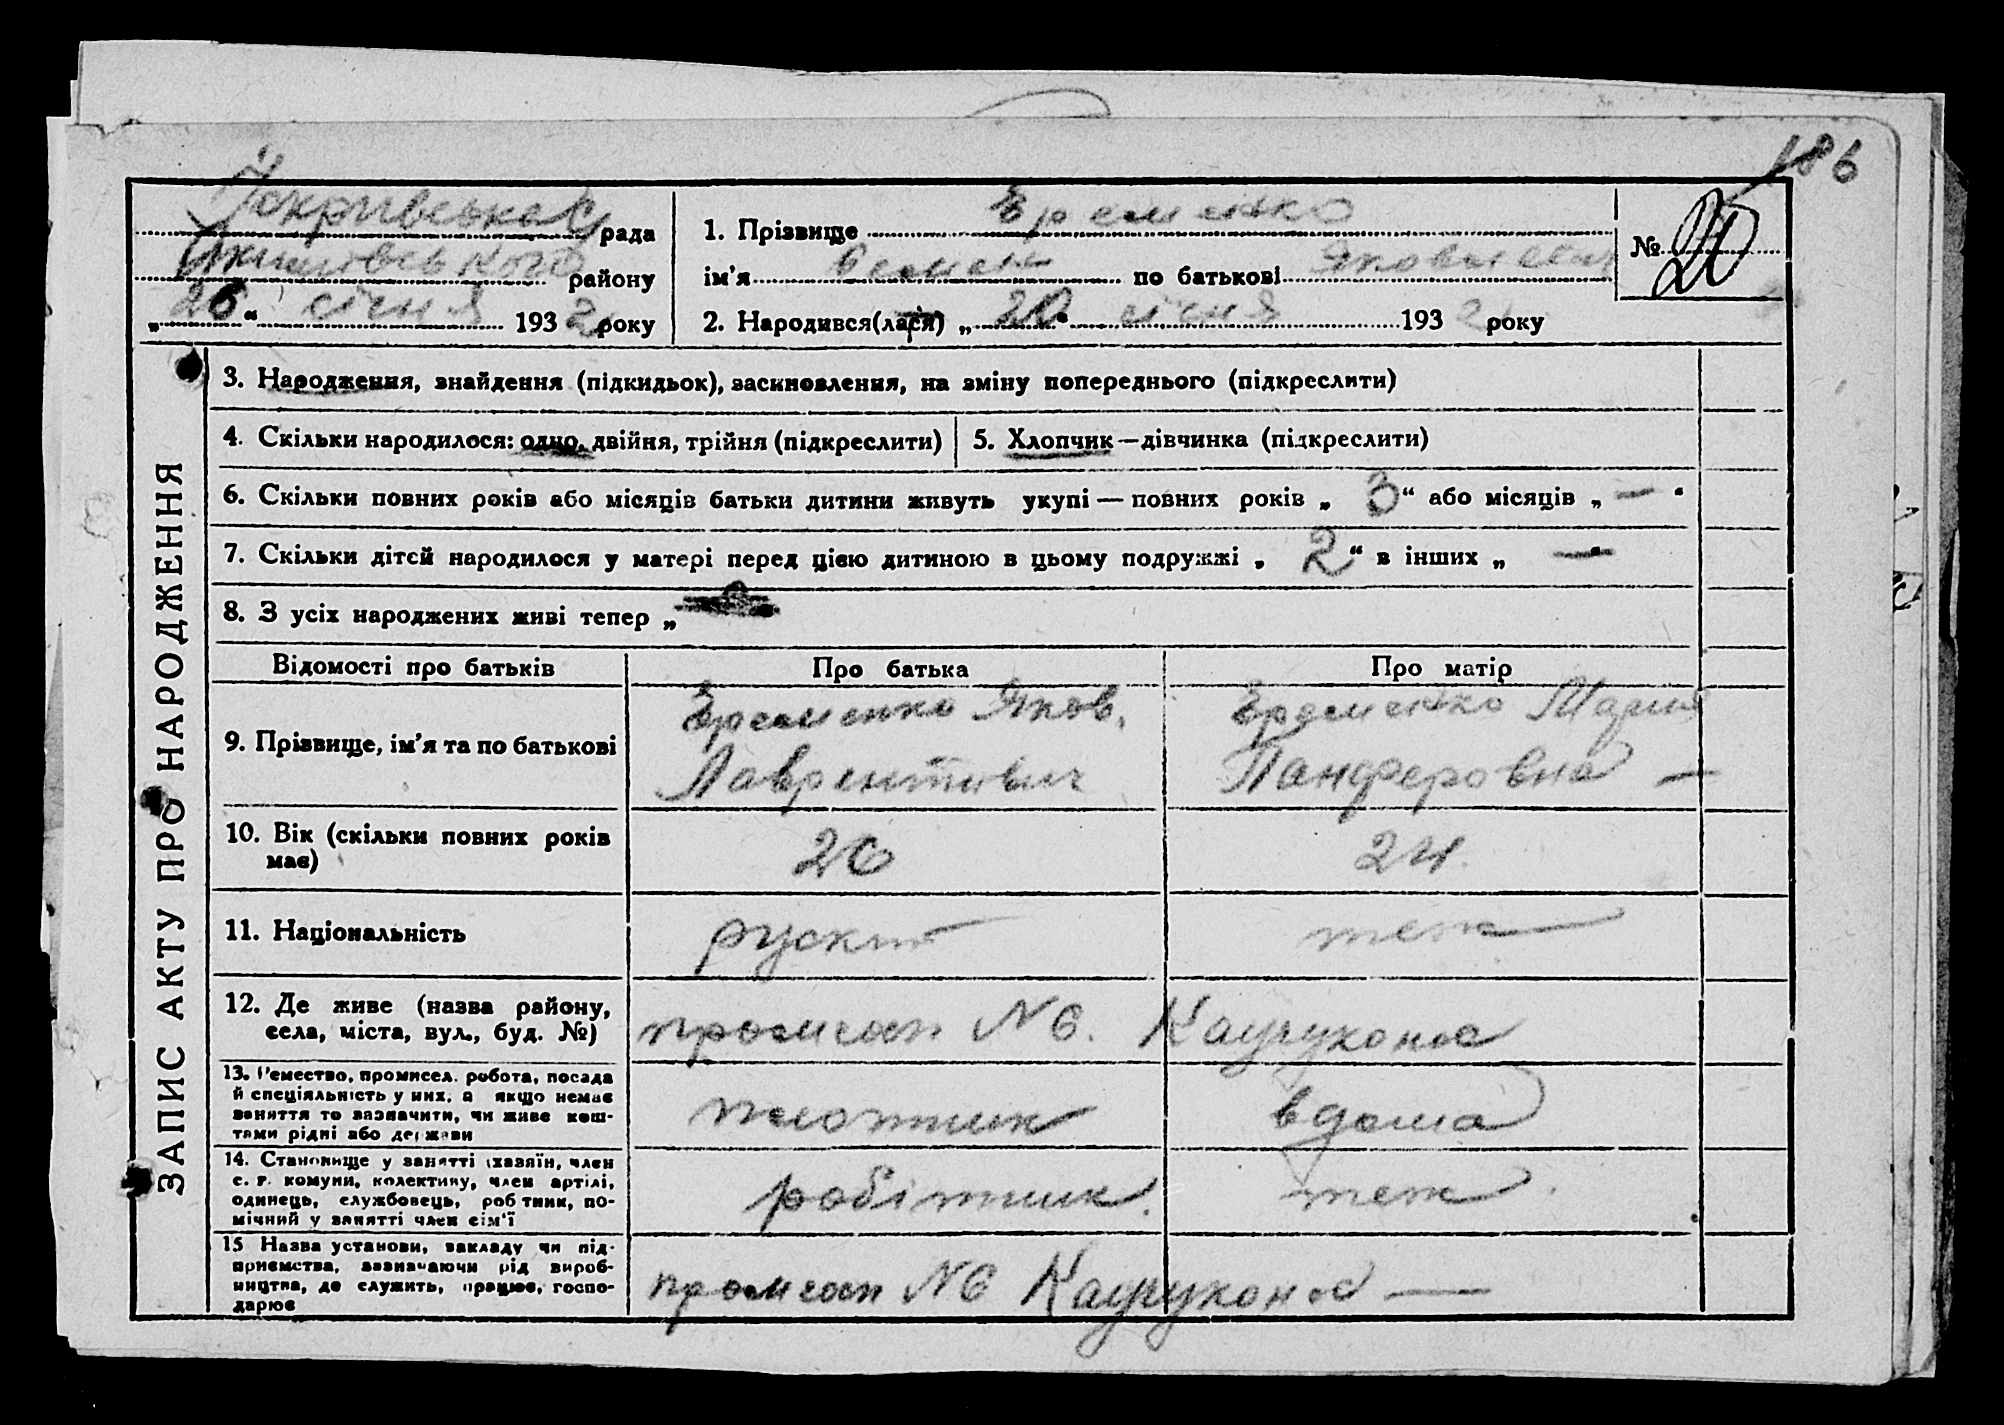 186
Покривська рада
району
„26“ січня 1932 року
1. Прізвище Еременко
ім'я по батькові Яковлевич
2. Народився(лася) „20“ січня 1932 року
№ 20
ЗАПИС АКТУ ПРО НАРОДЖЕННЯ
3. Народження, знайдення (підкидьок), засиновлення, на зміну попереднього (підкреслити)
4. Скільки народилося: одно, двійня, трійня (підкреслити)
5. Хлопчик—дівчинка (підкреслити)
6. Скільки повних років або місяців батьки дитини живуть укупі — повних років „3“ або місяців „—“
7. Скільки дітєй народилося у матері перед цією дитиною в цьому подружжі „2“ в інших „—“
8. З усіх народжених живі тепер „
Відомості про батьків Про батька Про матір
9. Прізвище, ім'я та по батькові
Еременко Яков.
Лаврентивич
Еременко Мария
Панферовна —
10. Вік (скільки повних років
має)
26
24
11. Національність
руский
теж
12. Де живе (назва району,
села, міста, вул., буд. №)
промсоп №6.
13. Ремество, промисел, робота, посада
й спеціяльність у них, а якщо немає
заняття то зазначити, чи живе кош-
тами рідні або держави
плотник
вдома
14. Становище у занятті (хазяїн, член
с. г. комуни, колективу, член артілі,
одинець, службовець, робітник, по-
мічний у занятті член сім'ї
робітник.
теж.
15 Назва установи, закладу чи під-
приємства, зазначаючи рід вироб-
ництва, де служить, працює, госпо-
дарює
промсоп №6